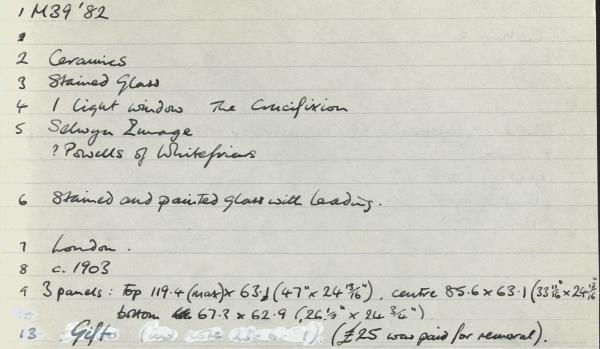 1 M39 '82
2 Ceramics
3 Stained Glass
4 1 Light window The Crucifixion
5 Selwyn Image
? Powells of Whitefriars
6 Stained and painted glass with leading.
7 London.
8 c. 1903
9 3 panels: Top 119.4 (max) x 63.1 (47" x 24 13/16"), centre 85.6 x 63.1 (33 11/16" x 24 13/16"
bottom 67.3 x 62.9 (26 1/2" x 24 3/4")
13 Gift (£25 was paid for removal).